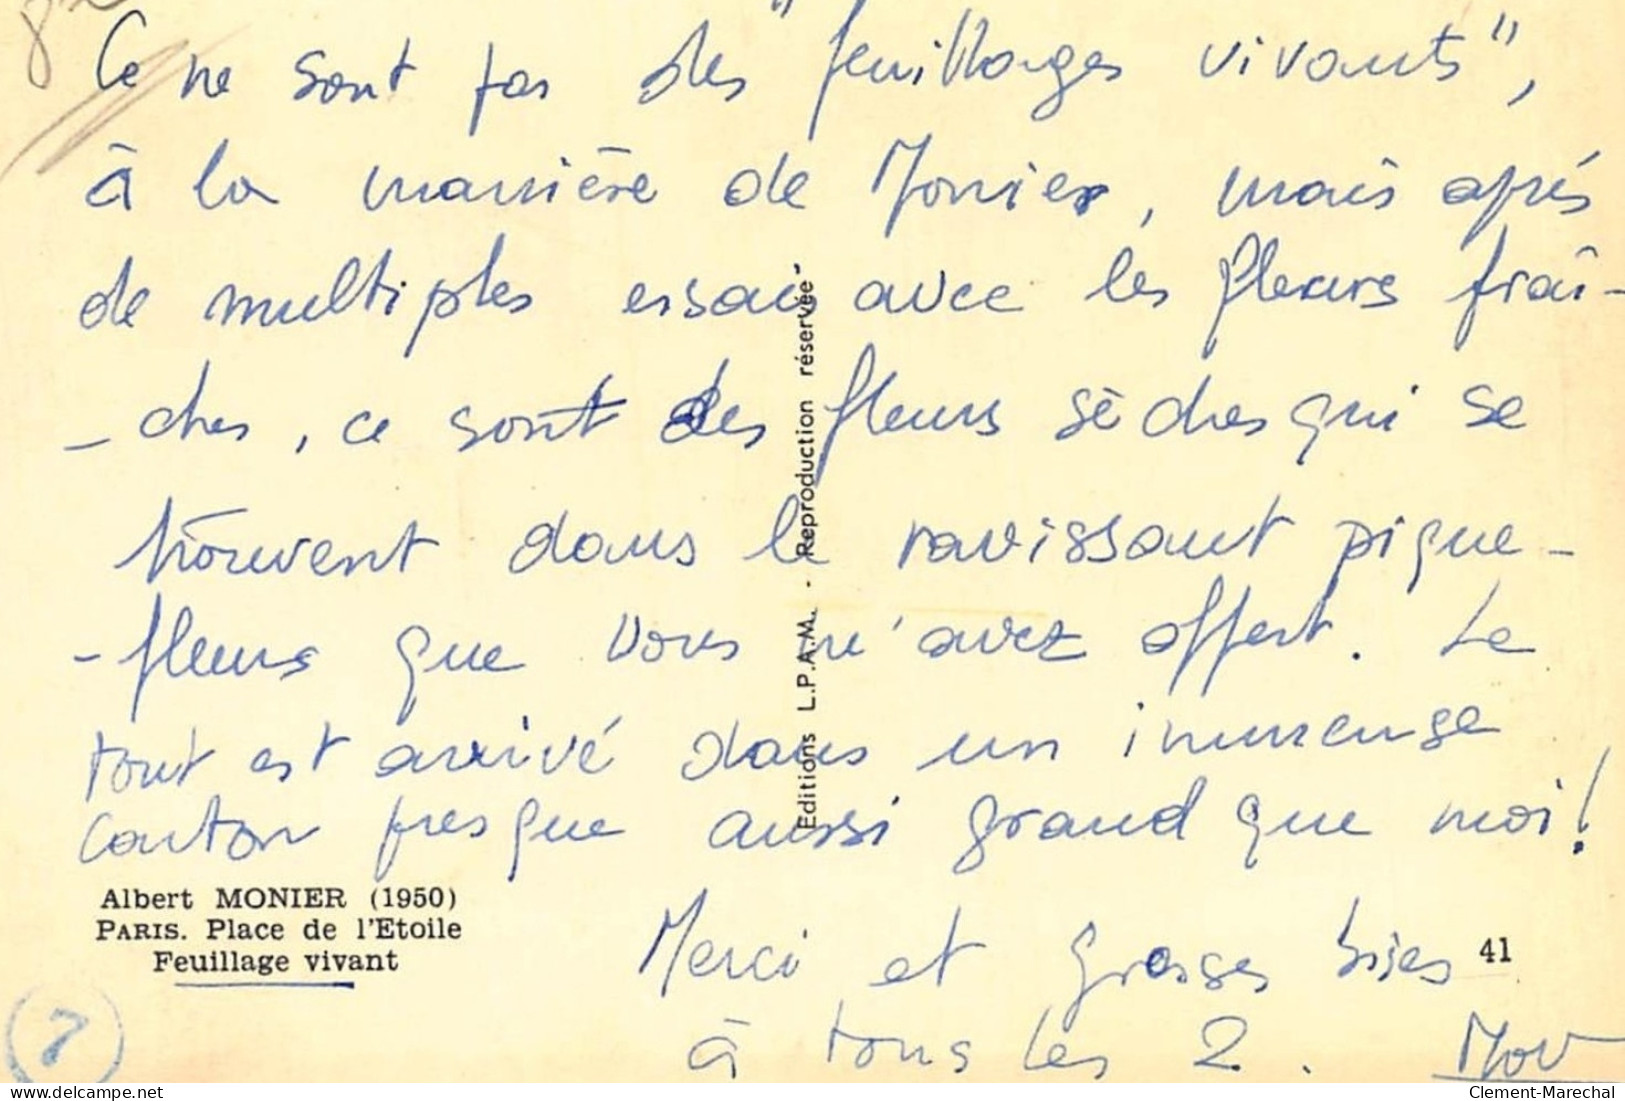 Ce ne sont pas des "feuillages vivants",
à la manière de Monier, mais après
de multiples essais avec les fleurs fraî-
-ches, ce sont des fleurs sèches qui se
trouvent dans le ravissant pique-
-fleurs que vous m'avez offert. Le
tout est arrivé dans un immense
carton presque aussi grand que moi!
Albert MONIER (1950)
PARIS. Place de l'Etoile
Feuillage vivant
Merci et grosses bises
à tous les 2.
41
7
Editions L.P.A.M. - Reproduction réservée
delcampe.net
Clement-Marechal